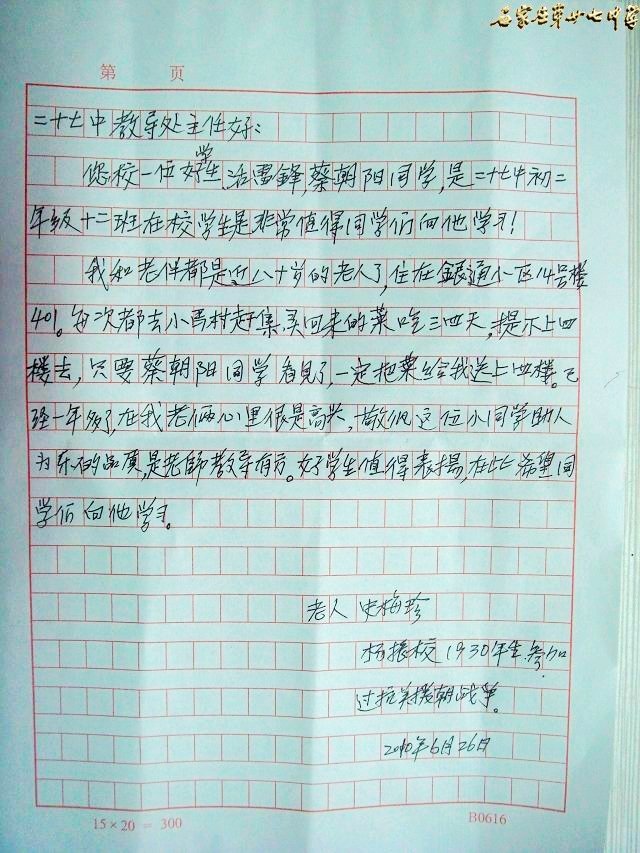 石家庄第廿七中学
第 页
二十七中教导处主任好:
您校一位好学生,活雷锋,蔡朝阳同学,是二十七中初二
年级十二班在校学生是非常值得同学们向他学习!
我和老伴都是近八十岁的老人了,住在銀通小区14号楼
401。每次都去小马村赶集,买回来的菜吃三四天,提不上四
楼去,只要蔡朝阳同学看見了,一定把菜给我送上四楼。已
经一年多了,在我老俩心里很是高兴,敬佩这位小同学助人
为乐的品质,是老師教导有方。好学生值得表揚,在此希望同
学们向他学习。
老人 史梅珍
杨振校 1930年生,参加
过抗美援朝战争。
2010年6月26日
15×20=300
B0616